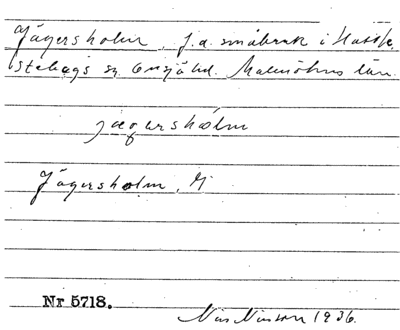 Jägersholm, f.d. småbruk i Hassle
Stebergs sn Onsjö hd. Malmöhus län.
jägershólm
Jägersholm, M
Nr 5718.
Nils Nilsson 1936.